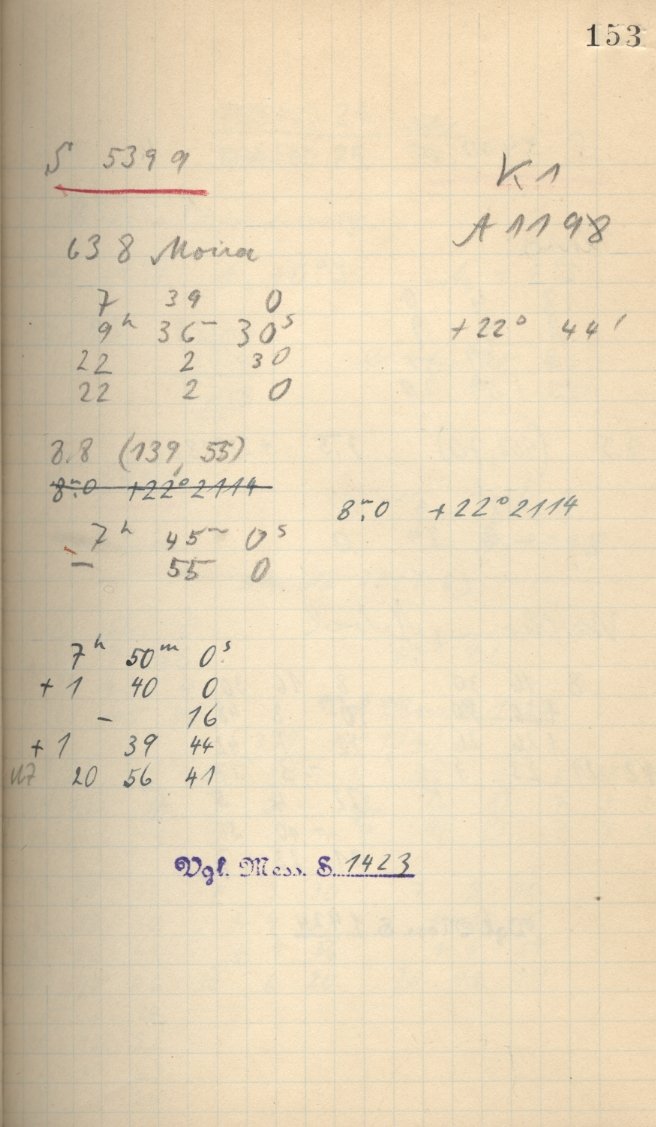 153
S 5399
K 1
A 1198
638 Moira
7 39 0
9h 36m 30s +22° 44'
22 2 30
22 2 0
B.8 (139, 55)
8m.0 +22°2114
8m.0 +22°2114
7h 45m 0s
- 55 0
7h 50m 0s
+ 1 40 0
- 16
+ 1 39 44
20 56 41
Vgl. Mess. S. 1423